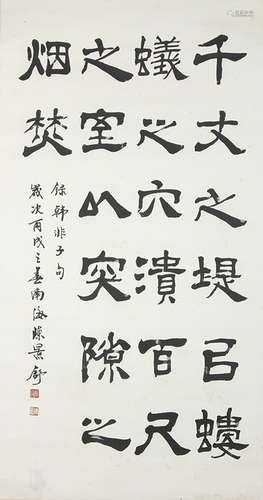 千丈之堤㠯螻
蟻之穴潰百尺
之室以突隙之
烟焚
錄韓非子句
歲次丙戌之春南海陳景舒